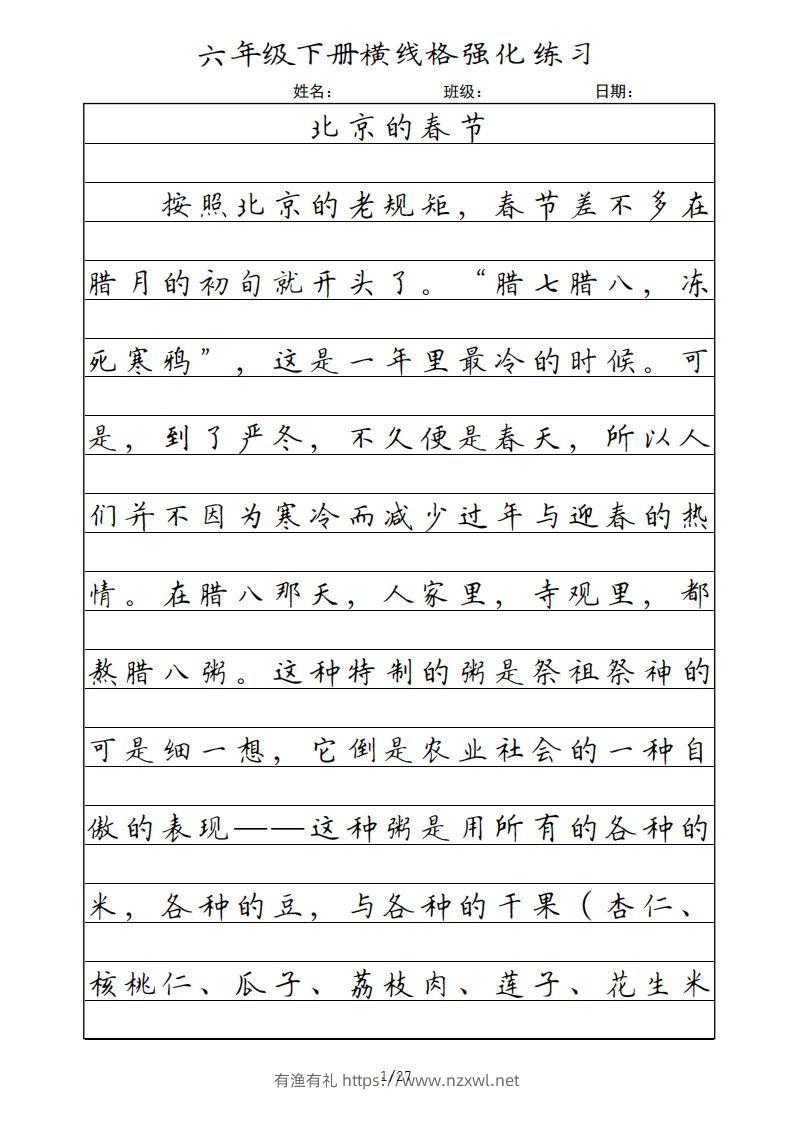 六年级下册横线格强化练习
姓名： 班级： 日期：
北京的春节
按照北京的老规矩，春节差不多在
腊月的初旬就开头了。“腊七腊八，冻
死寒鸦”，这是一年里最冷的时候。可
是，到了严冬，不久便是春天，所以人
们并不因为寒冷而减少过年与迎春的热
情。在腊八那天，人家里，寺观里，都
熬腊八粥。这种特制的粥是祭祖祭神的
可是细一想，它倒是农业社会的一种自
傲的表现——这种粥是用所有的各种的
米，各种的豆，与各种的干果（杏仁、
核桃仁、瓜子、荔枝肉、莲子、花生米
1/27
有渔有礼 https://www.nzxwl.net